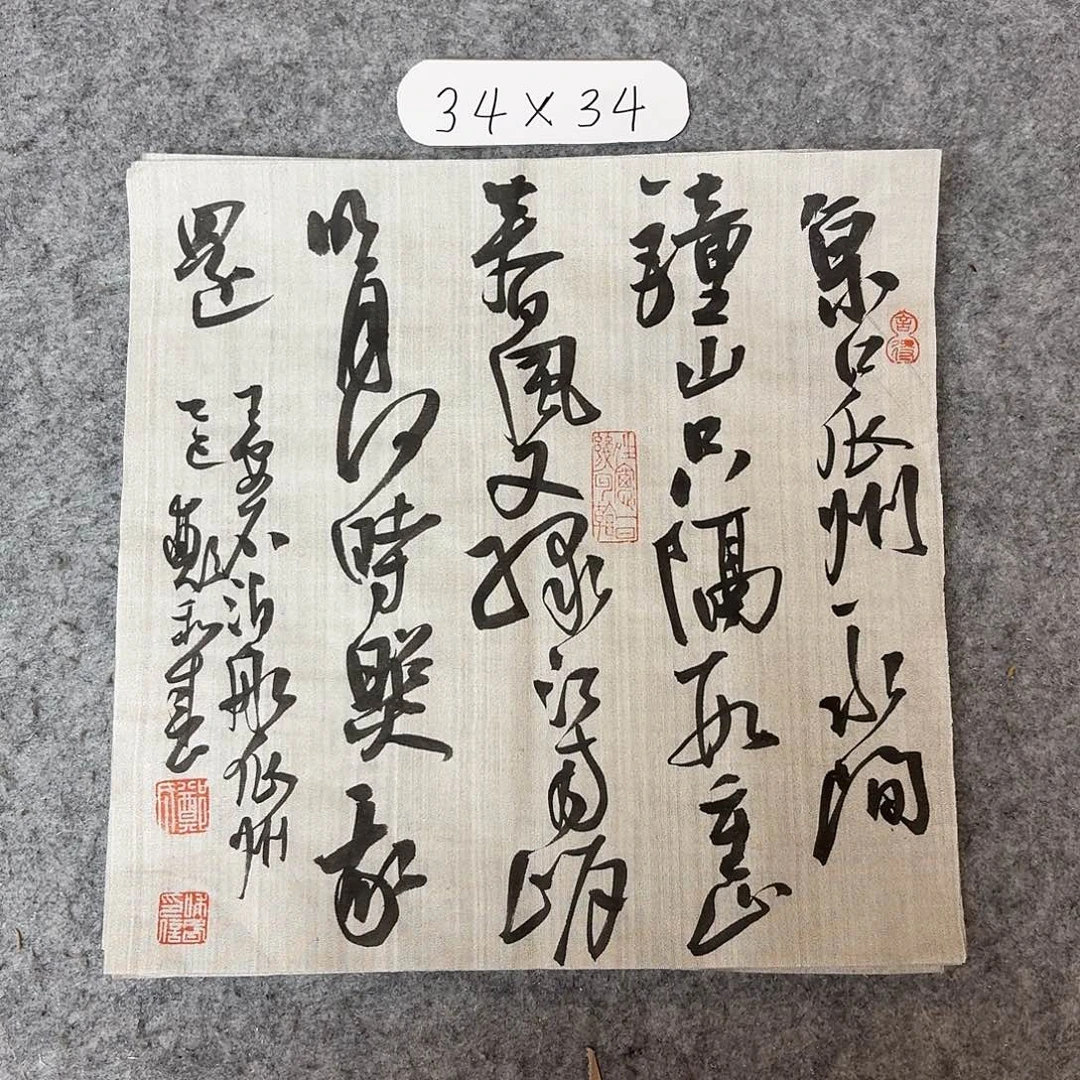 34×34
京口瓜州一水間
鐘山只隔数重山
春風又緑江南岸
明月何時照我
還
王安石泊船瓜州
乙巳 鄭
舍得